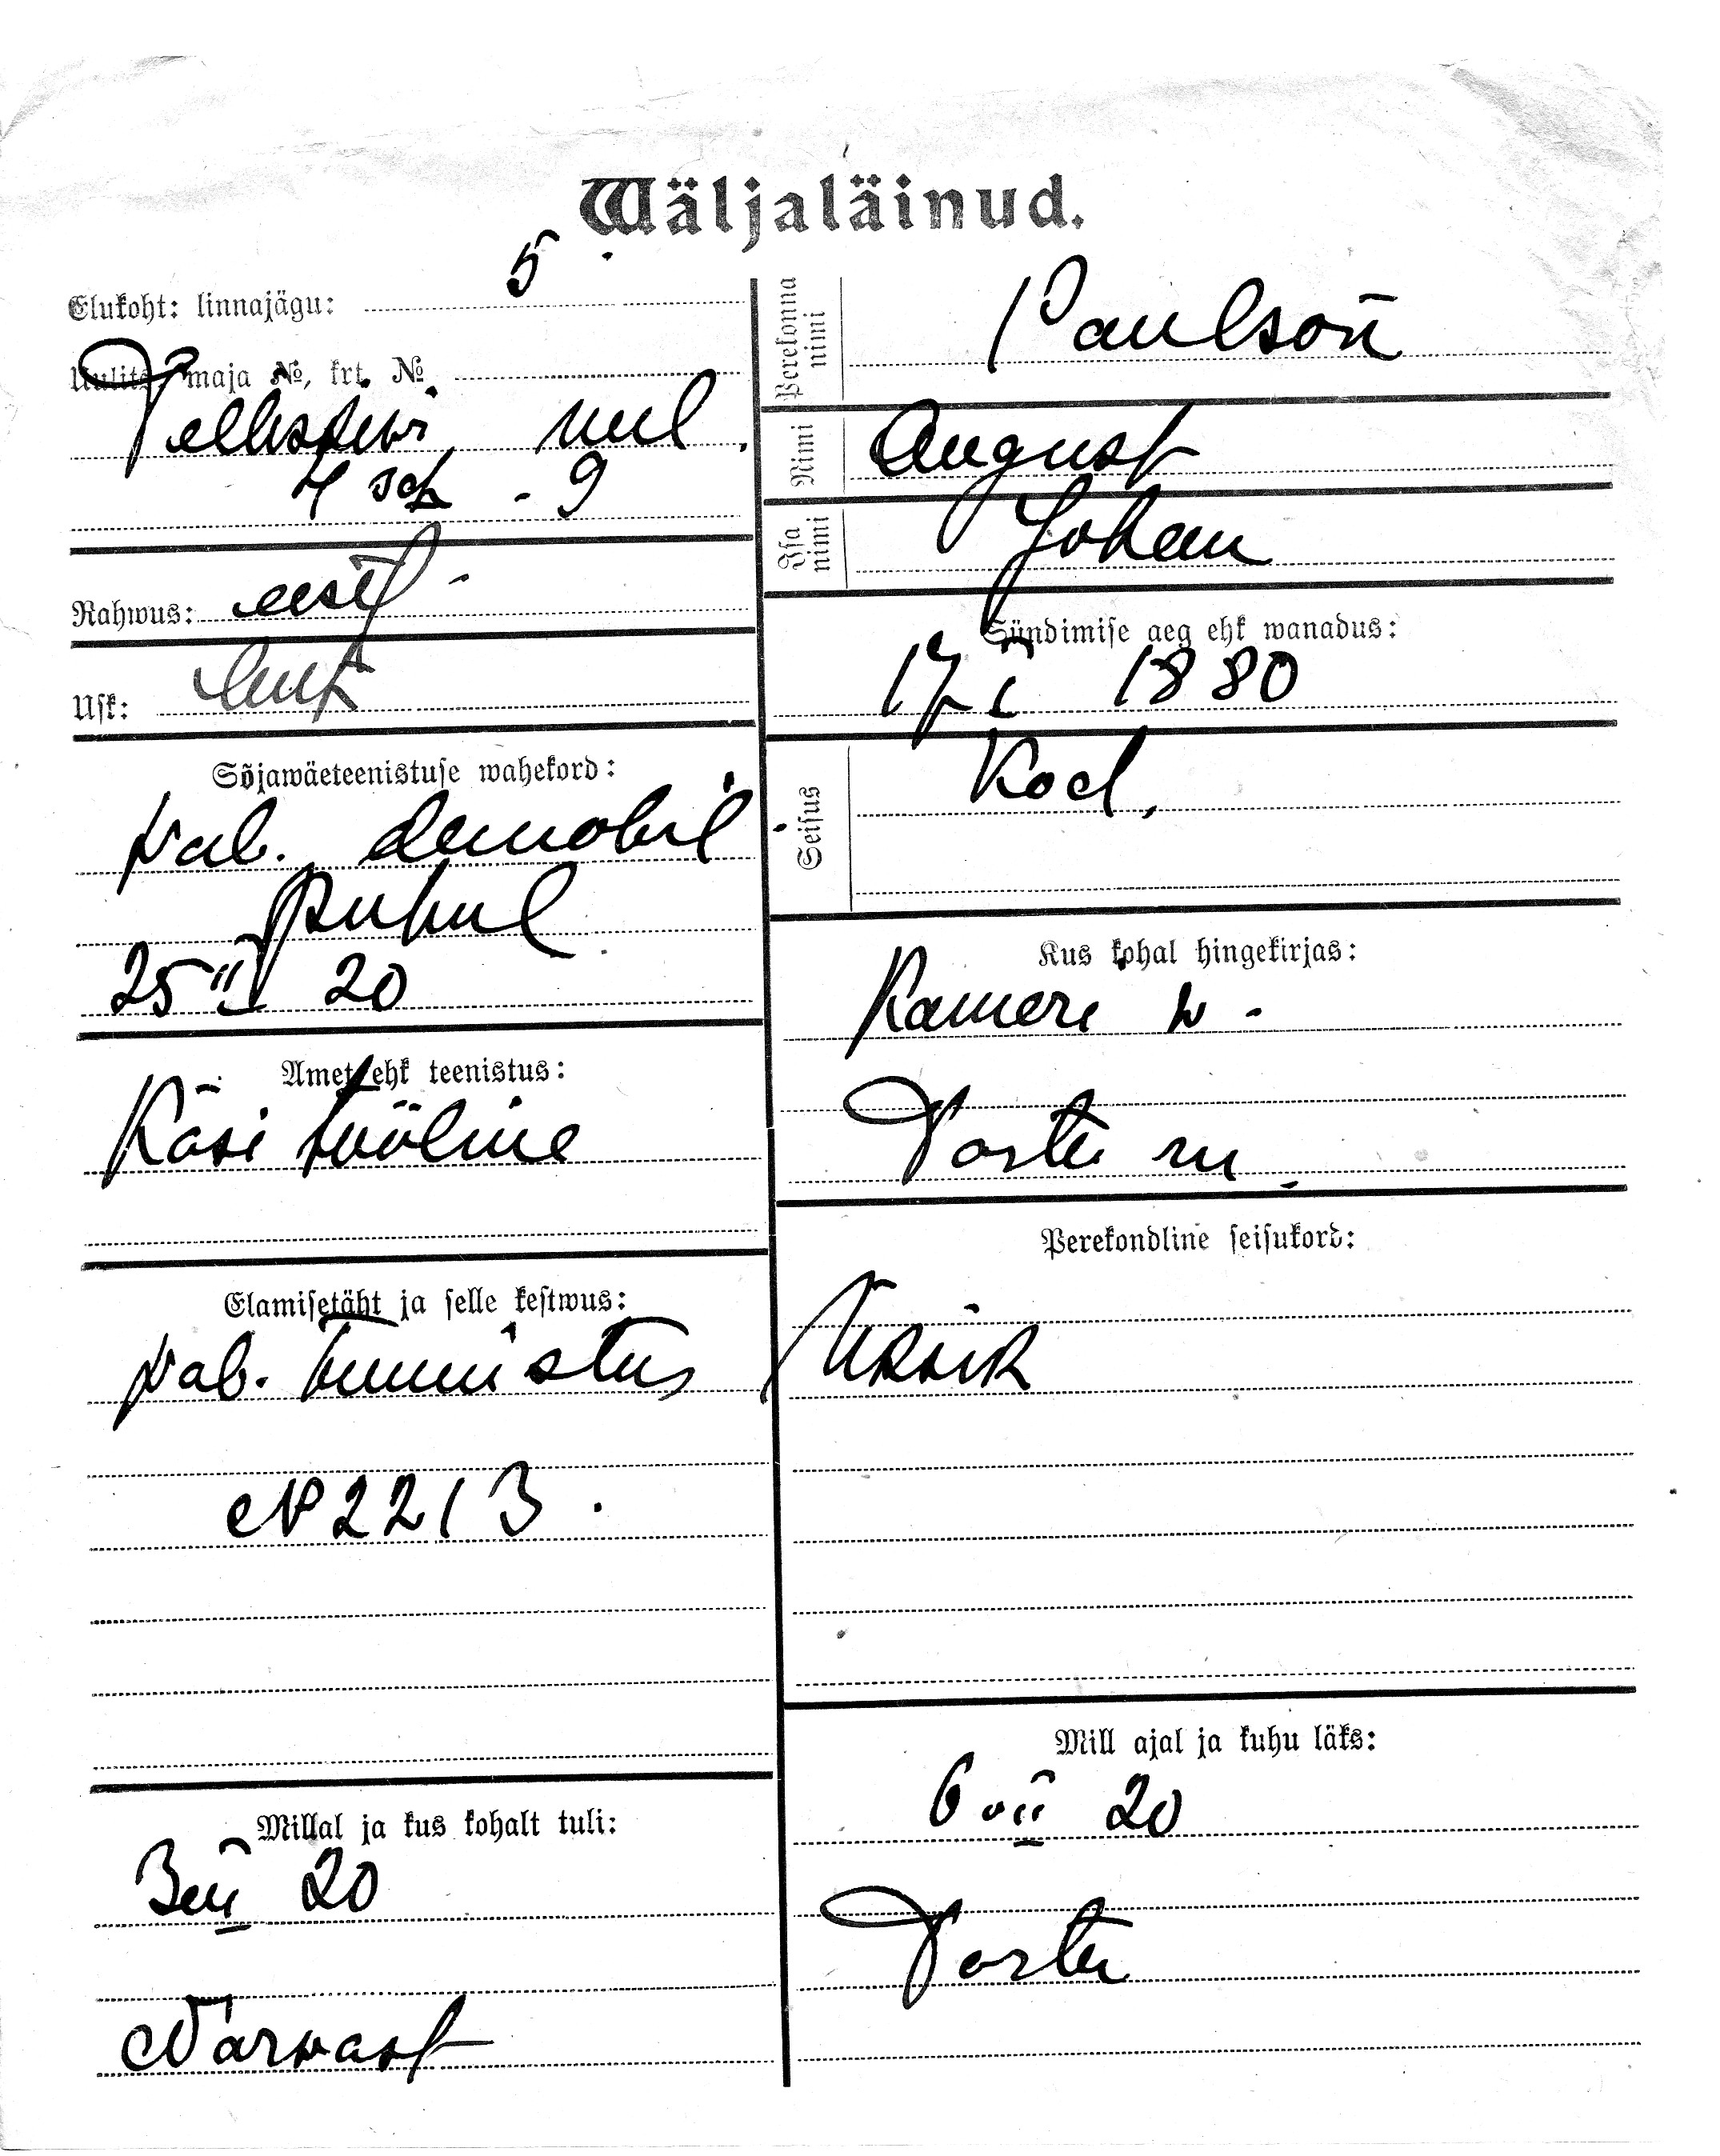 Wäljaläinud.
Elukoht: linnajägu: 5
Uulits, maja №, krt. №
Telliskiwi uul.
4 sch - 9
Rahwus: eest
Usk: lut
Sõjawäeteenistuse wahekord:
wab. demobil
puhul
25 II 20
Amet ehk teenistus:
Käsi tööline
Elamisetäht ja selle kestwus:
wab. tunnistus
№ 2213.
Millal ja kus kohalt tuli:
3 III 20
Narwast
Perekonna nimi Paulson
Nimi August
Isa nimi Johan
Sündimise aeg ehk wanadus:
17 I 1880
Seisus Kod.
Kus kohal hingekirjas:
Kaweri w -
Tartu m
Perekondline seisukord:
Üksik
Mill ajal ja kuhu läks:
6 VII 20
Tartu